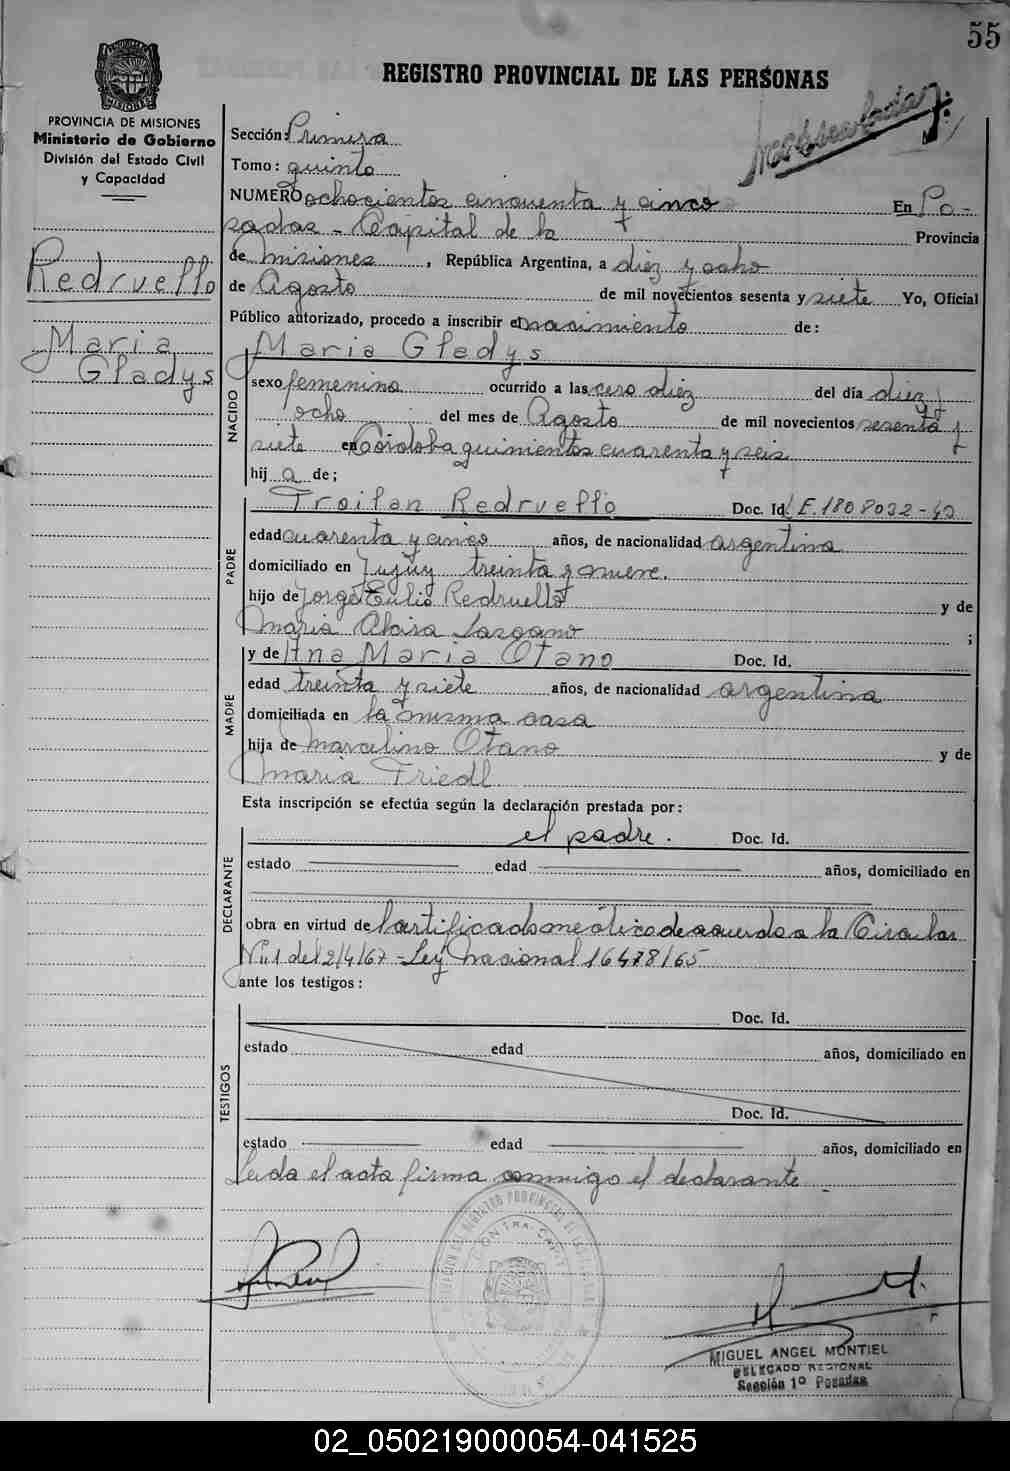 55
REGISTRO PROVINCIAL DE LAS PERSONAS
PROVINCIA DE MISIONES
Ministerio de Gobierno
División del Estado Civil
y Capacidad
Redruello
Maria
Gladys
Sección: Primera
Tomo: quinto
NUMERO ochocientos cincuenta y cinco En Po-
sadas - Capital de la Provincia
de Misiones, República Argentina, a diez y ocho
de Agosto de mil novecientos sesenta y siete Yo, Oficial
Público autorizado, procedo a inscribir el nacimiento de:
Maria Gladys
NACIDO
sexo femenino ocurrido a las cero diez del día diez y
ocho del mes de Agosto de mil novecientos sesenta y
siete en Córdoba quinientos cuarenta y seis
hij a de;
PADRE
Troilan Redruello Doc. Id. L.E. 1808032-42
edad cuarenta y cinco años, de nacionalidad argentina
domiciliado en Jujuy treinta y nueve.
hijo de Jorge Eulio Redruello y de
Maria ;
MADRE
y de Ana Maria Otano Doc. Id.
edad treinta y siete años, de nacionalidad argentina
domiciliada en la misma casa
hija de Marcelino Otano y de
Maria Friedl
Esta inscripción se efectúa según la declaración prestada por:
DECLARANTE
el padre. Doc. Id.
estado edad años, domiciliado en
obra en virtud de Certificado médico de acuerdo a la Circular
Nº 1 del 2/4/67 - Ley Nacional 16478/65
ante los testigos:
TESTIGOS
Doc. Id.
estado edad años, domiciliado en
Doc. Id.
estado edad años, domiciliado en
Leida el acta firma conmigo el declarante
MIGUEL ANGEL MONTIEL
DELEGADO REGIONAL
Sección 1º Posadas
02_050219000054-041525